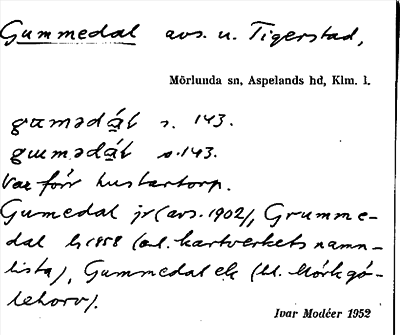 Gummedal avs. u. Tigerstad,
Mörlunda sn, Aspelands hd, Klm. l.
s. 143.
s. 143.
Var förr husartorp.
Gumedal jr (avs. 1902), Grumme-
dal (ed. kartverkets namn-
lista), Gummedal ek (bl. Mörk gö-
Ivar Modéer 1952